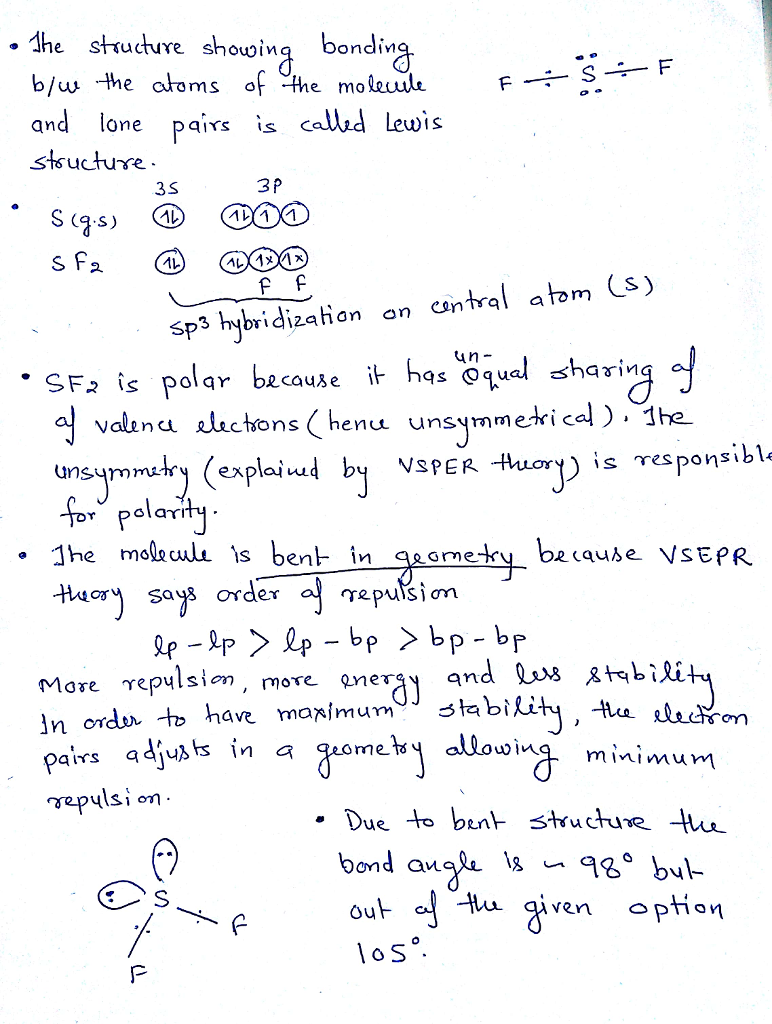 • The structure showing bonding
b/w the atoms of the molecule
and lone pairs is called Lewis
structure.
F ÷ S ÷ F
• 3S 3P
S (g.s) 1L 1L 1 1
S F2 1L 1L 1x 1x
F F
sp3 hybridization on central atom (S)
• SF2 is polar because it has un-equal sharing of
of valence electrons (hence unsymmetrical). The
unsymmetry (explained by VSPER theory) is responsible
for polarity.
• The molecule is bent in geometry because VSEPR
theory says order of repulsion
lp - lp > lp - bp > bp - bp
More repulsion, more energy and less stability
In order to have maximum stability, the electron
pairs adjusts in a geometry allowing minimum
repulsion.
• Due to bent structure the
bond angle is ~ 98° but
out of the given option
105°.
S
F
F